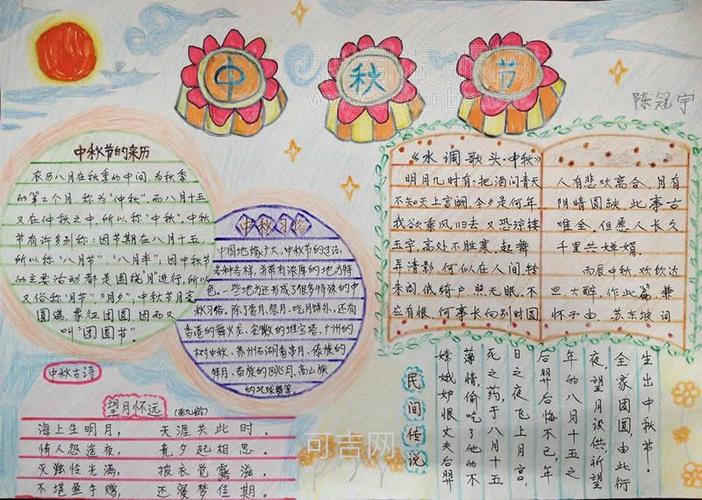 中秋节
陈冠宇
中秋节的来历
农历八月在秋季的中间,为秋季
的第2个月,称为“仲秋”,而八月十五
又在仲秋之中,所以称“中秋”,中秋
节有许多别称:因节期在八月十五,
所以称“八月节”、“八月半”,因中秋节
的主要活动都是围绕“月”进行,所以
又俗称“月节”“月夕”,中秋节月亮
圆满,象征团圆,因而又
叫“团圆节”。
中秋习俗
中国地缘广大,中秋节的习俗,
各种各样,并带有浓厚的地方特
色,一些地方还形成了很多特殊的中
秋习俗。除了赏月、祭月、吃月饼外,还有
香港的舞火龙、安徽的堆宝塔、广州的
树中秋、苏州石湖看串月、傣族的
拜月、苗族的跳月、高山族
的托球舞等。
《水调歌头·中秋》
明月几时有,把酒问青天
不知天上宫阙,今夕是何年
我欲乘风归去,又恐琼楼
玉宇,高处不胜寒,起舞
弄清影,何似在人间,转
朱阁,低绮户,照无眠,不
应有恨,何事长向别时圆
人有悲欢离合,月有
阴晴圆缺,此事古
难全,但愿人长久
千里共婵娟。
丙辰中秋,欢饮达
旦大醉,作此篇兼
怀子由 苏东坡词
中秋古诗
望月怀远
海上生明月, 天涯共此时。
情人怨遥夜, 竟夕起相思。
灭烛怜光满, 披衣觉露滋。
不堪盈手赠, 还寝梦佳期。
民间传说
嫦娥妒恨丈夫后羿
薄情,偷吃了他的不
死之药,于八月十五
日之夜飞上月宫,
后羿后悔不已,年
年的八月十五之
夜,望月诀供祈望
全家团圆,由此衍
生出中秋节。
可吉网